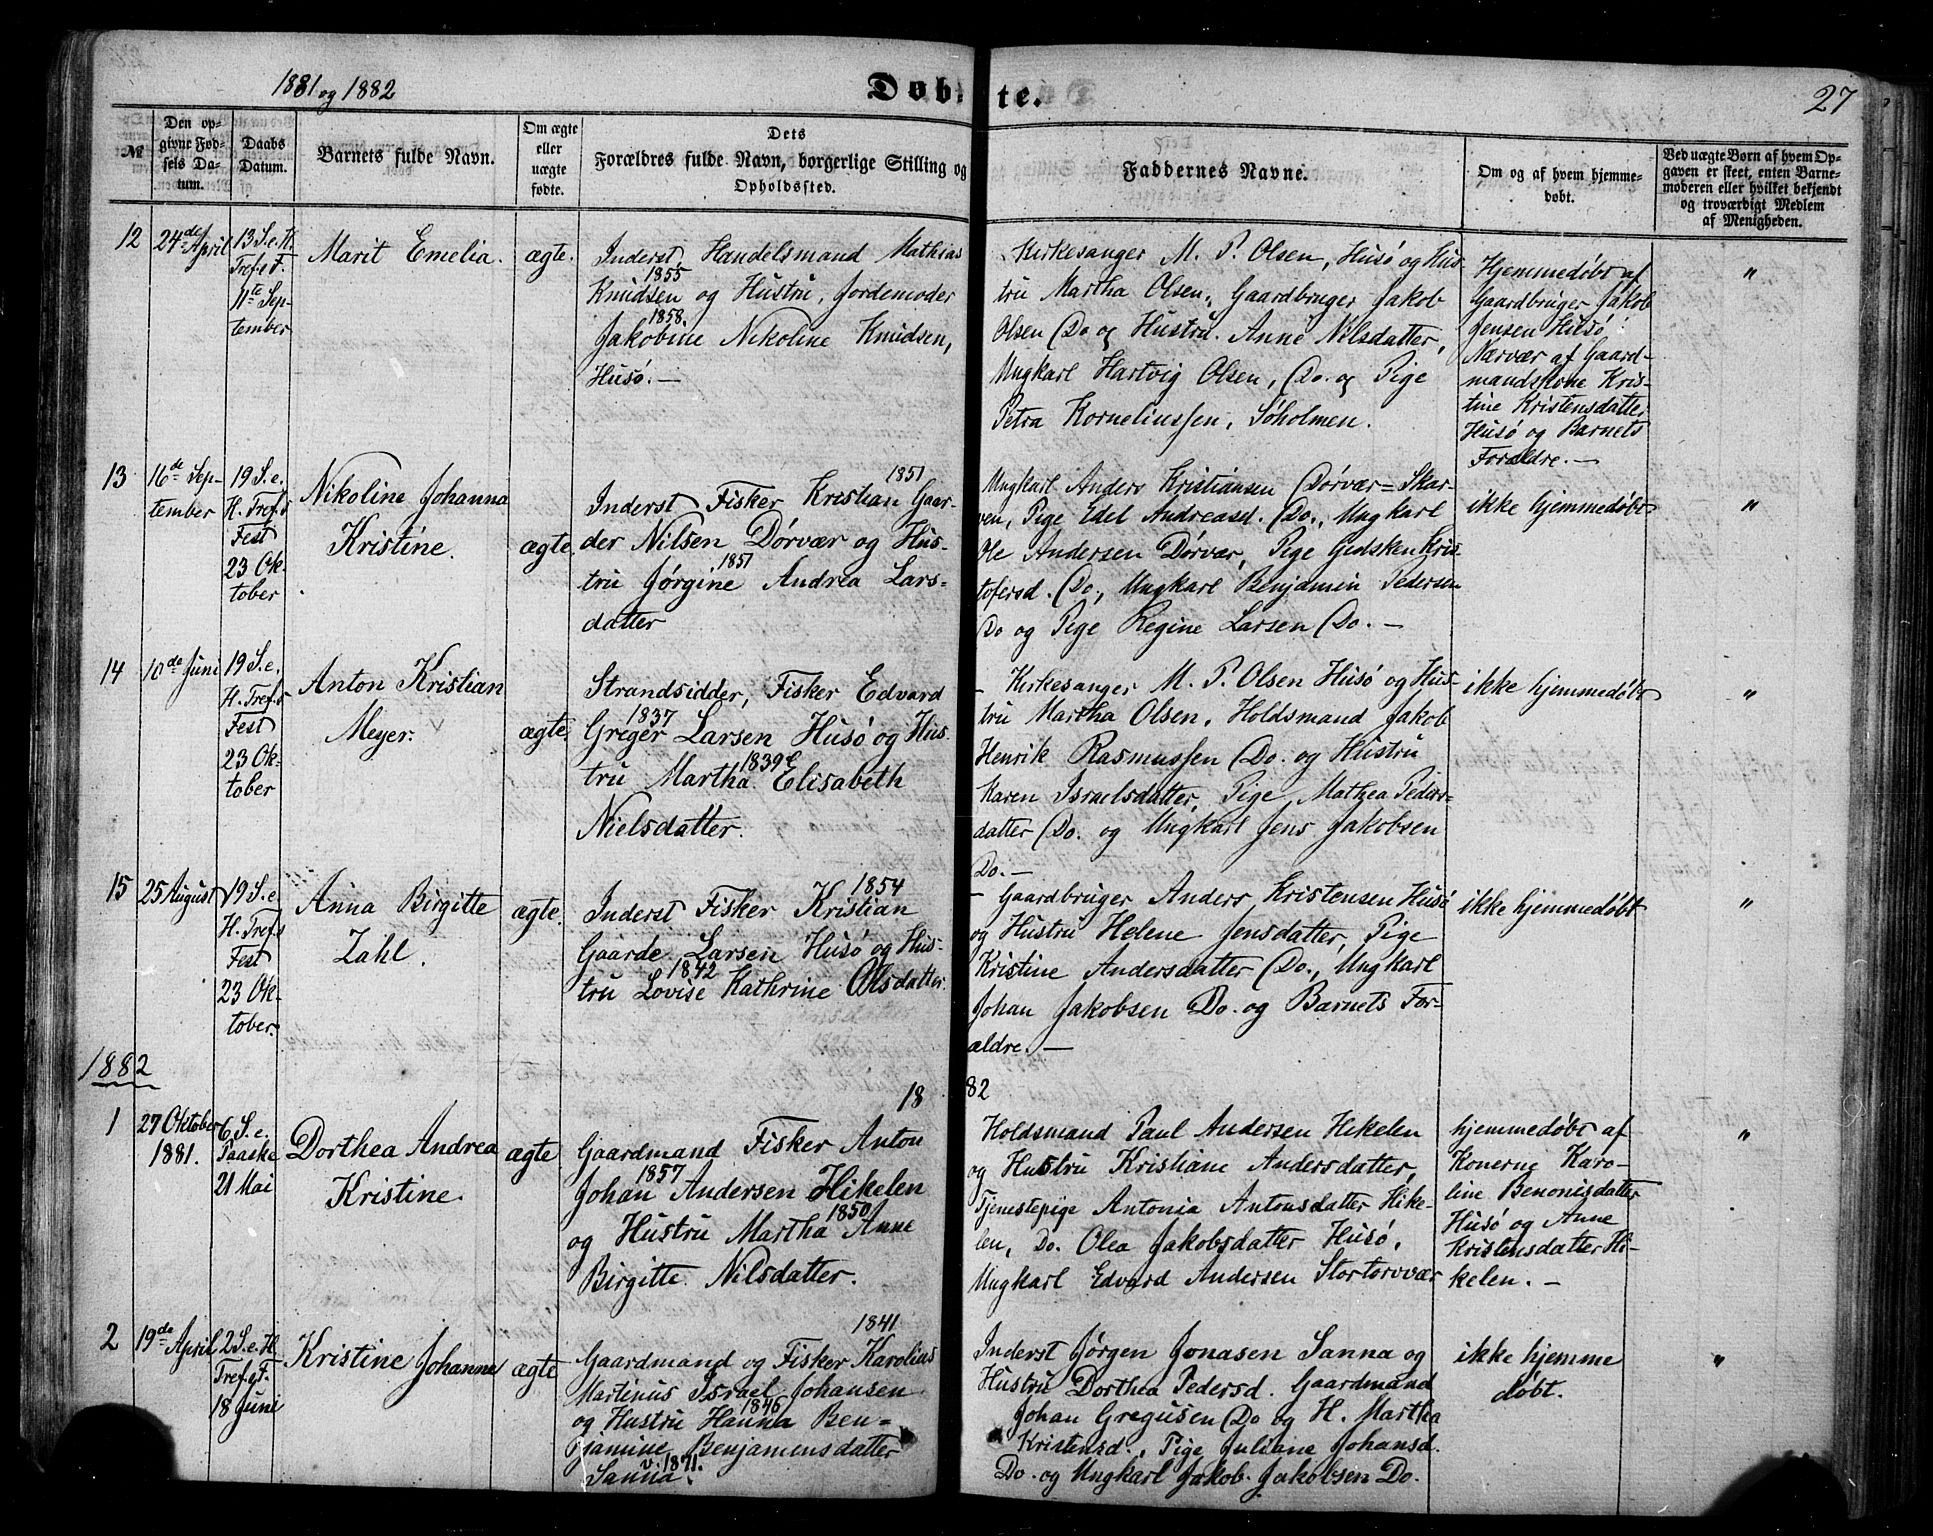 1881 og 1882
Døbte.
27
№
Den op-
givne Fød-
sels Da-
tum.
Daabs
Datum.
Barnets fulde Navn.
Om ægte
eller
uægte
fødte.
Dets
Forældres fulde Navn, borgerlige Stilling og
Opholdssted.
Faddernes Navne.
Om og af hvem hjemme-
døbt.
Ved uægte Børn af hvem Op-
gaven er skeet, enten Barne-
moderen eller hvilket bekjendt
og troværdigt Medlem
af Menigheden.
12
24de April
13 S. e. H.
Tref.s F.
11te Sep-
tember
Marit Emelia.
ægte.
Inderst Handelsmand Mathias
1855
Knudsen og Hustru, Jordemoder
1858.
Jakobine Nikoline Knudsen,
Husö. —
Kirkesanger M. P. Olsen, Husö og Hus-
tru Martha Olsen, Gaardbruger Jakob
Olsen Do og Hustru Anne Nilsdatter,
Ungkarl Hartvig Olsen, Do. og Pige
Petra Korneliussen, Soholmen.
Hjemmedöbt af
Gaardbruger Jakob
Jensen Husö i
Nærvær af Gaard-
mandskone Kris-
tine Kristensdatter
Husö og Barnets
Forældre. —
"
13
16de Sep-
tember
19 S. e.
H. Tref.s
Fest
23 Ok-
tober
Nikoline Johanna
Kristine.
ægte.
1851
Inderst Fisker Kristian Gaar-
der Nilsen Dörvær og Hus-
1851
tru Jørgine Andrea Lars-
datter
Ungkarl Anders Kristiansen Dörvær=Skar-
ven, Pige Edel Andreasd. Do., Ungkarl
Ole Andersen Dörvær, Pige Gidsken Kris-
tofersd. Do., Ungkarl Benjamin Pedersen
Do og Pige Regine Larsen Do. —
ikke hjemmedöbt
"
14
10de Juni
19 S. e.
H. Tref.s
Fest
23 Ok-
tober
Anton Kristian
Meyer.
ægte.
Strandsidder, Fisker Edvard
1837
Greger Larsen Husö og Hus-
1839
tru Martha Elisabeth
Nielsdatter.
Kirkesanger M. P. Olsen Husö og Hus-
tru Martha Olsen, Holdsmand Jakob
Henrik Rasmussen Do. og Hustru
Karen Israelsdatter, Pige Mathea Peders-
datter Do. og Ungkarl Jens Jakobsen
Do. —
ikke hjemmedöbt
"
15
25 August
19 S. e.
H. Tref.s
Fest
23 Ok-
tober.
Anna Birgitte
Zahl.
ægte.
1854
Inderst Fisker Kristian
Gaarde Larsen Husö og Hus-
1842
tru Lovise Kathrine Olsdatter.
— Gaardbruger Anders Kristensen Husö
og Hustru Helene Jensdatter, Pige
Kristine Andersdatter Do., Ungkarl
Johan Jakobsen Do. og Barnets For-
ældre. —
ikke hjemmedöbt
"
1882
18 82
1
27 Oktober
1881.
6 S. e.
Paaske
21 Mai
Dorthea Andrea
Kristine.
ægte
Gaardmand Fisker Anton
1857
Johan Andersen Hikelen
1850
og Hustru Martha Anne
Birgitte Nilsdatter.
Holdsmand Paul Andersen Hikelen
og Hustru Kristiane Andersdatter,
Tjenestepige Antonia Antonsdatter Hike-
len, Do. Olea Jakobsdatter Husö,
Ungkarl Edvard Andersen Stortorvvær
hjemmedöbt af
Konerne Karo-
line Benonisdatter
Husö og Anne
Kristensdatter Hi-
kelen. —
"
2
19de April
2 S. e. H.
Tref.s F.
18 Juni
Kristine Johanne
ægte
1841.
Gaardmand og Fisker Karolius
Martinus Israel Johansen
1846
og Hustru Hanna Ben-
jamine Benjamensdatter
v. 1871.
Sanna.
Inderst Jörgen Jonasen Sanna og
Hustru Dorthea Pedersd. Gaardmand
Johan Gregusen Do og H. Martha
Kristensd., Pige Juliane Johansd.
Do. og Ungkarl Jakob Jakobsen Do.
ikke hjemme
döbt.
"